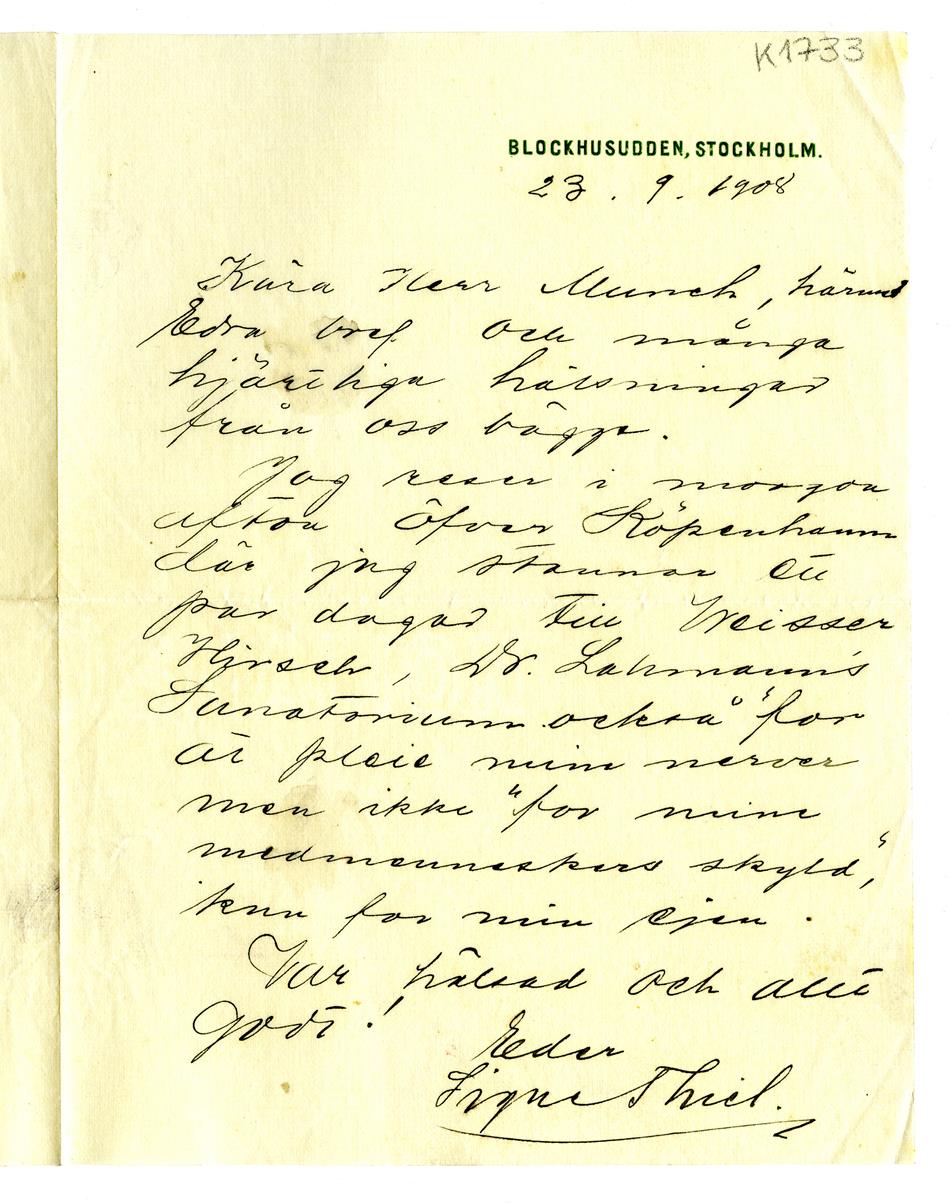 K1733
BLOCKHUSUDDEN, STOCKHOLM.
23. 9. 1908
Kära Herr Munch, härmed
Edra bref och många
hjärtliga hälsningar
från oss bägge.
Jag reser i morgon
afton öfver Köpenhamn
där jag stannar ett
par dagar till Weisser
Hirsch, Dr. Lahmann's
Sanatorium också "for
at pleie mine nerver
men ikke "for mine
medmenneskers skyld",
kun for min ejen.
Var hälsad och allt
godt!
Eder
Signe Thiel.